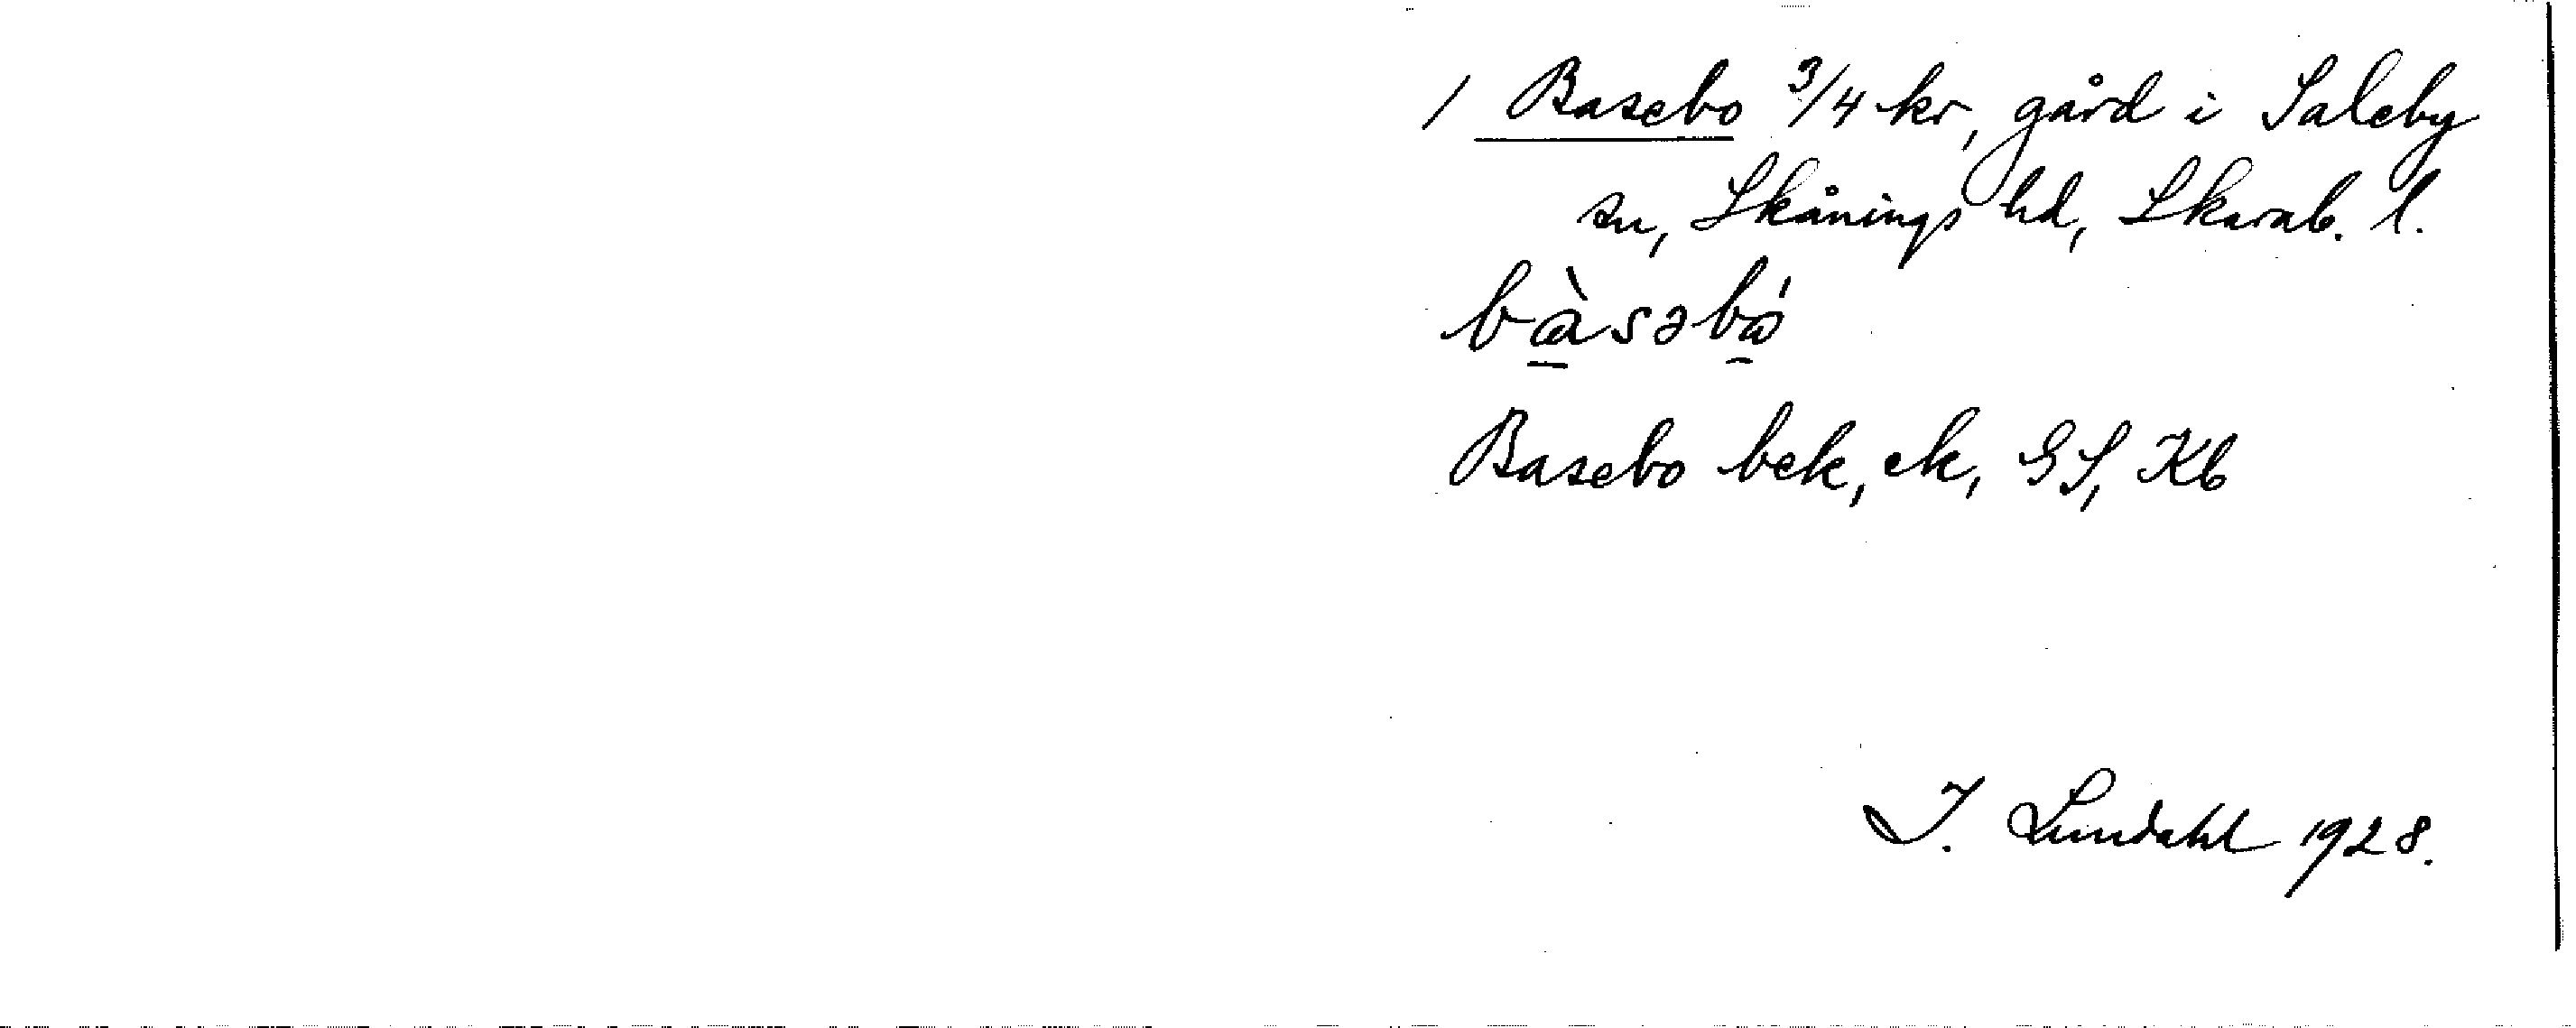 1 Basebo 3/4 kr, gård i Saleby
sn, Skånings hd, Skarab. l.
bàsəbó
Basebo bek, ek, GS, Kb
I. Lundahl 1928.